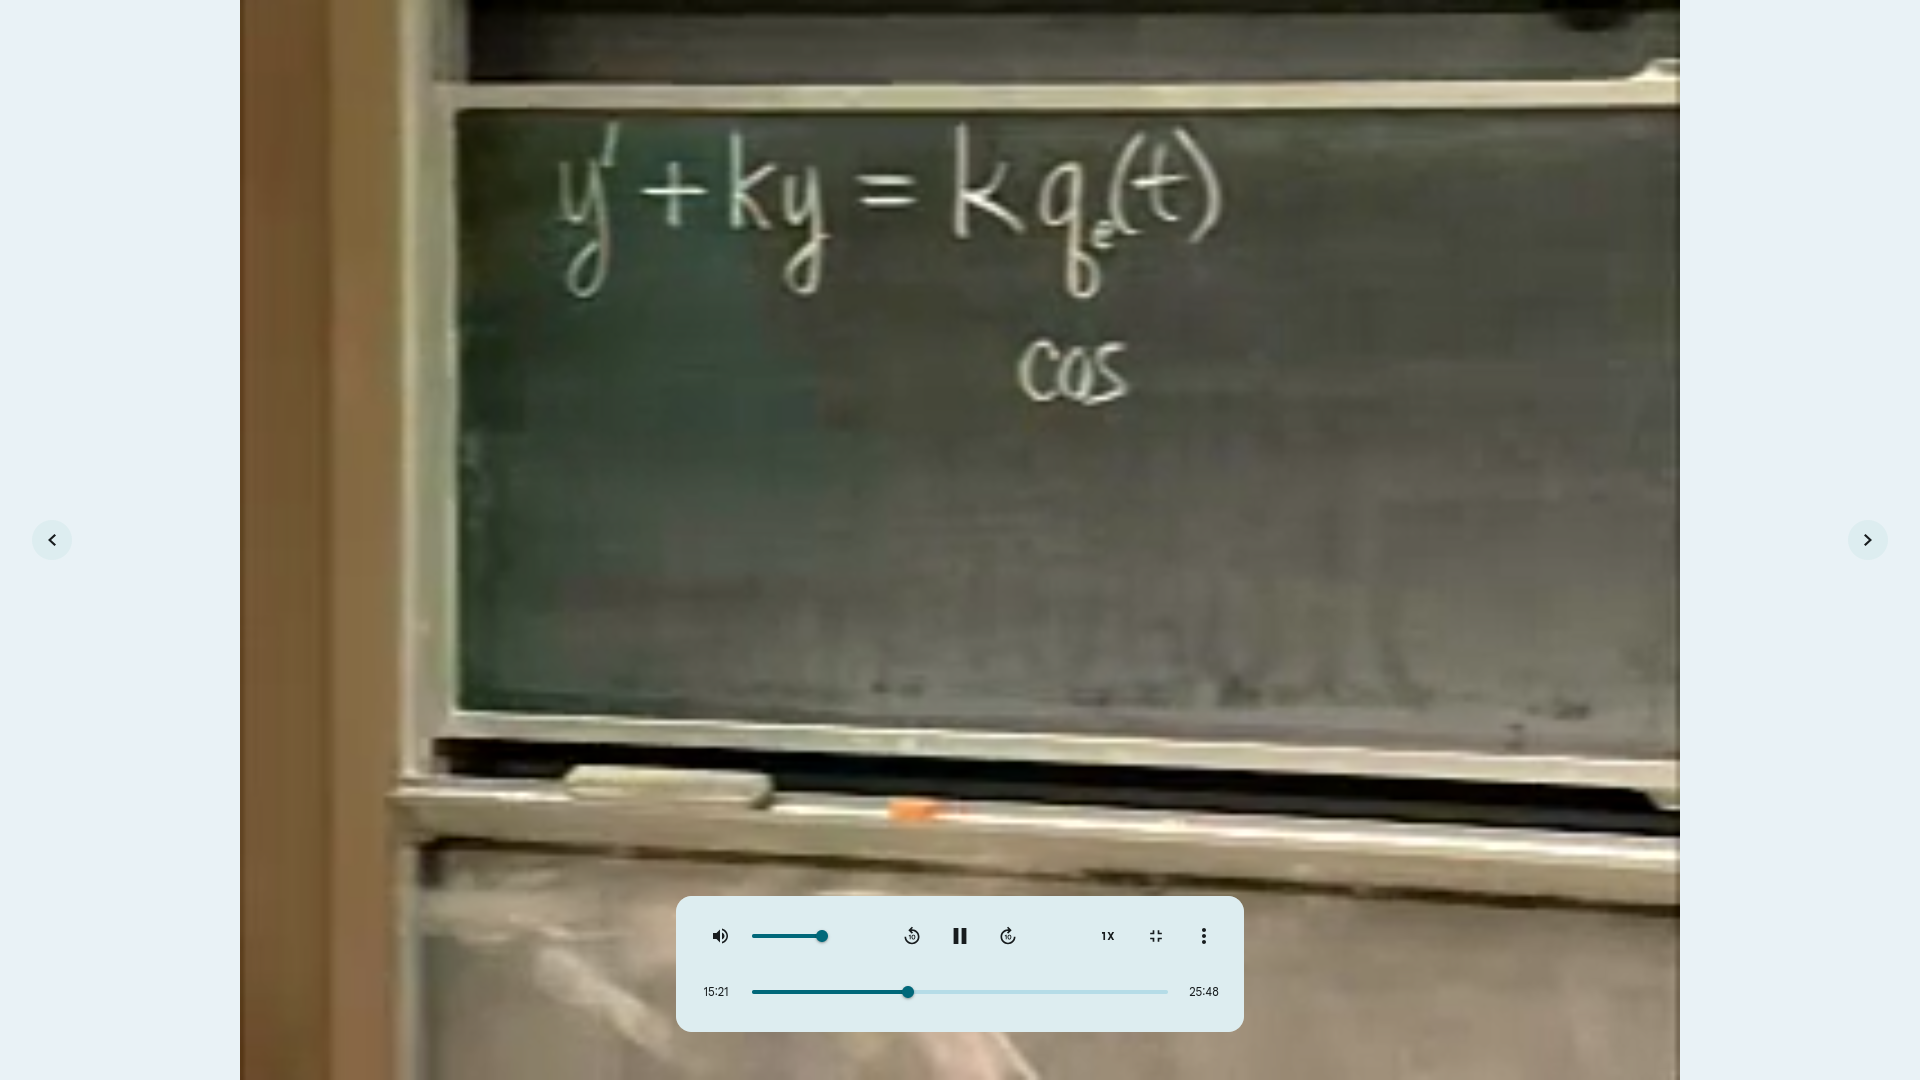 y' + ky = k qₑ(t)
cos
10
10
1X
15:21
25:48